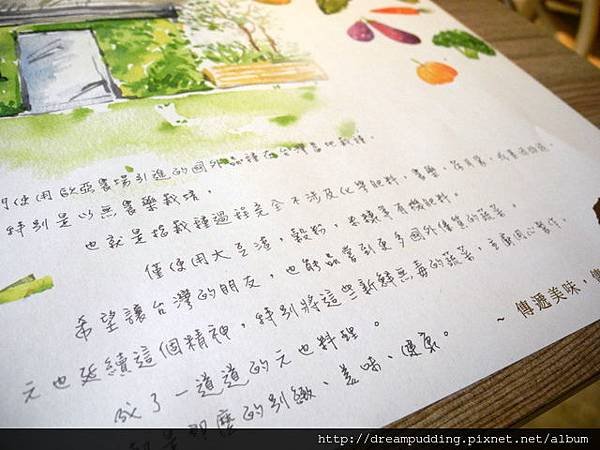 使用歐亞農場引進的國外品種在台灣當地栽種。
特別是以無農藥栽培，
也就是指栽種過程完全不涉及化學肥料，農藥，
僅使用大豆渣，穀粉，米糠等有機肥料。
希望讓台灣的朋友，也能品嘗到更多國外優質的蔬菜。
元也延續這個精神，特別將這些新鮮無毒的蔬菜，主廚用心製作。
成了一道道的元也料理。
那麼的別緻、美味、健康。
~ 傳遞美味，
http://dreampudding.pixnet.net/album